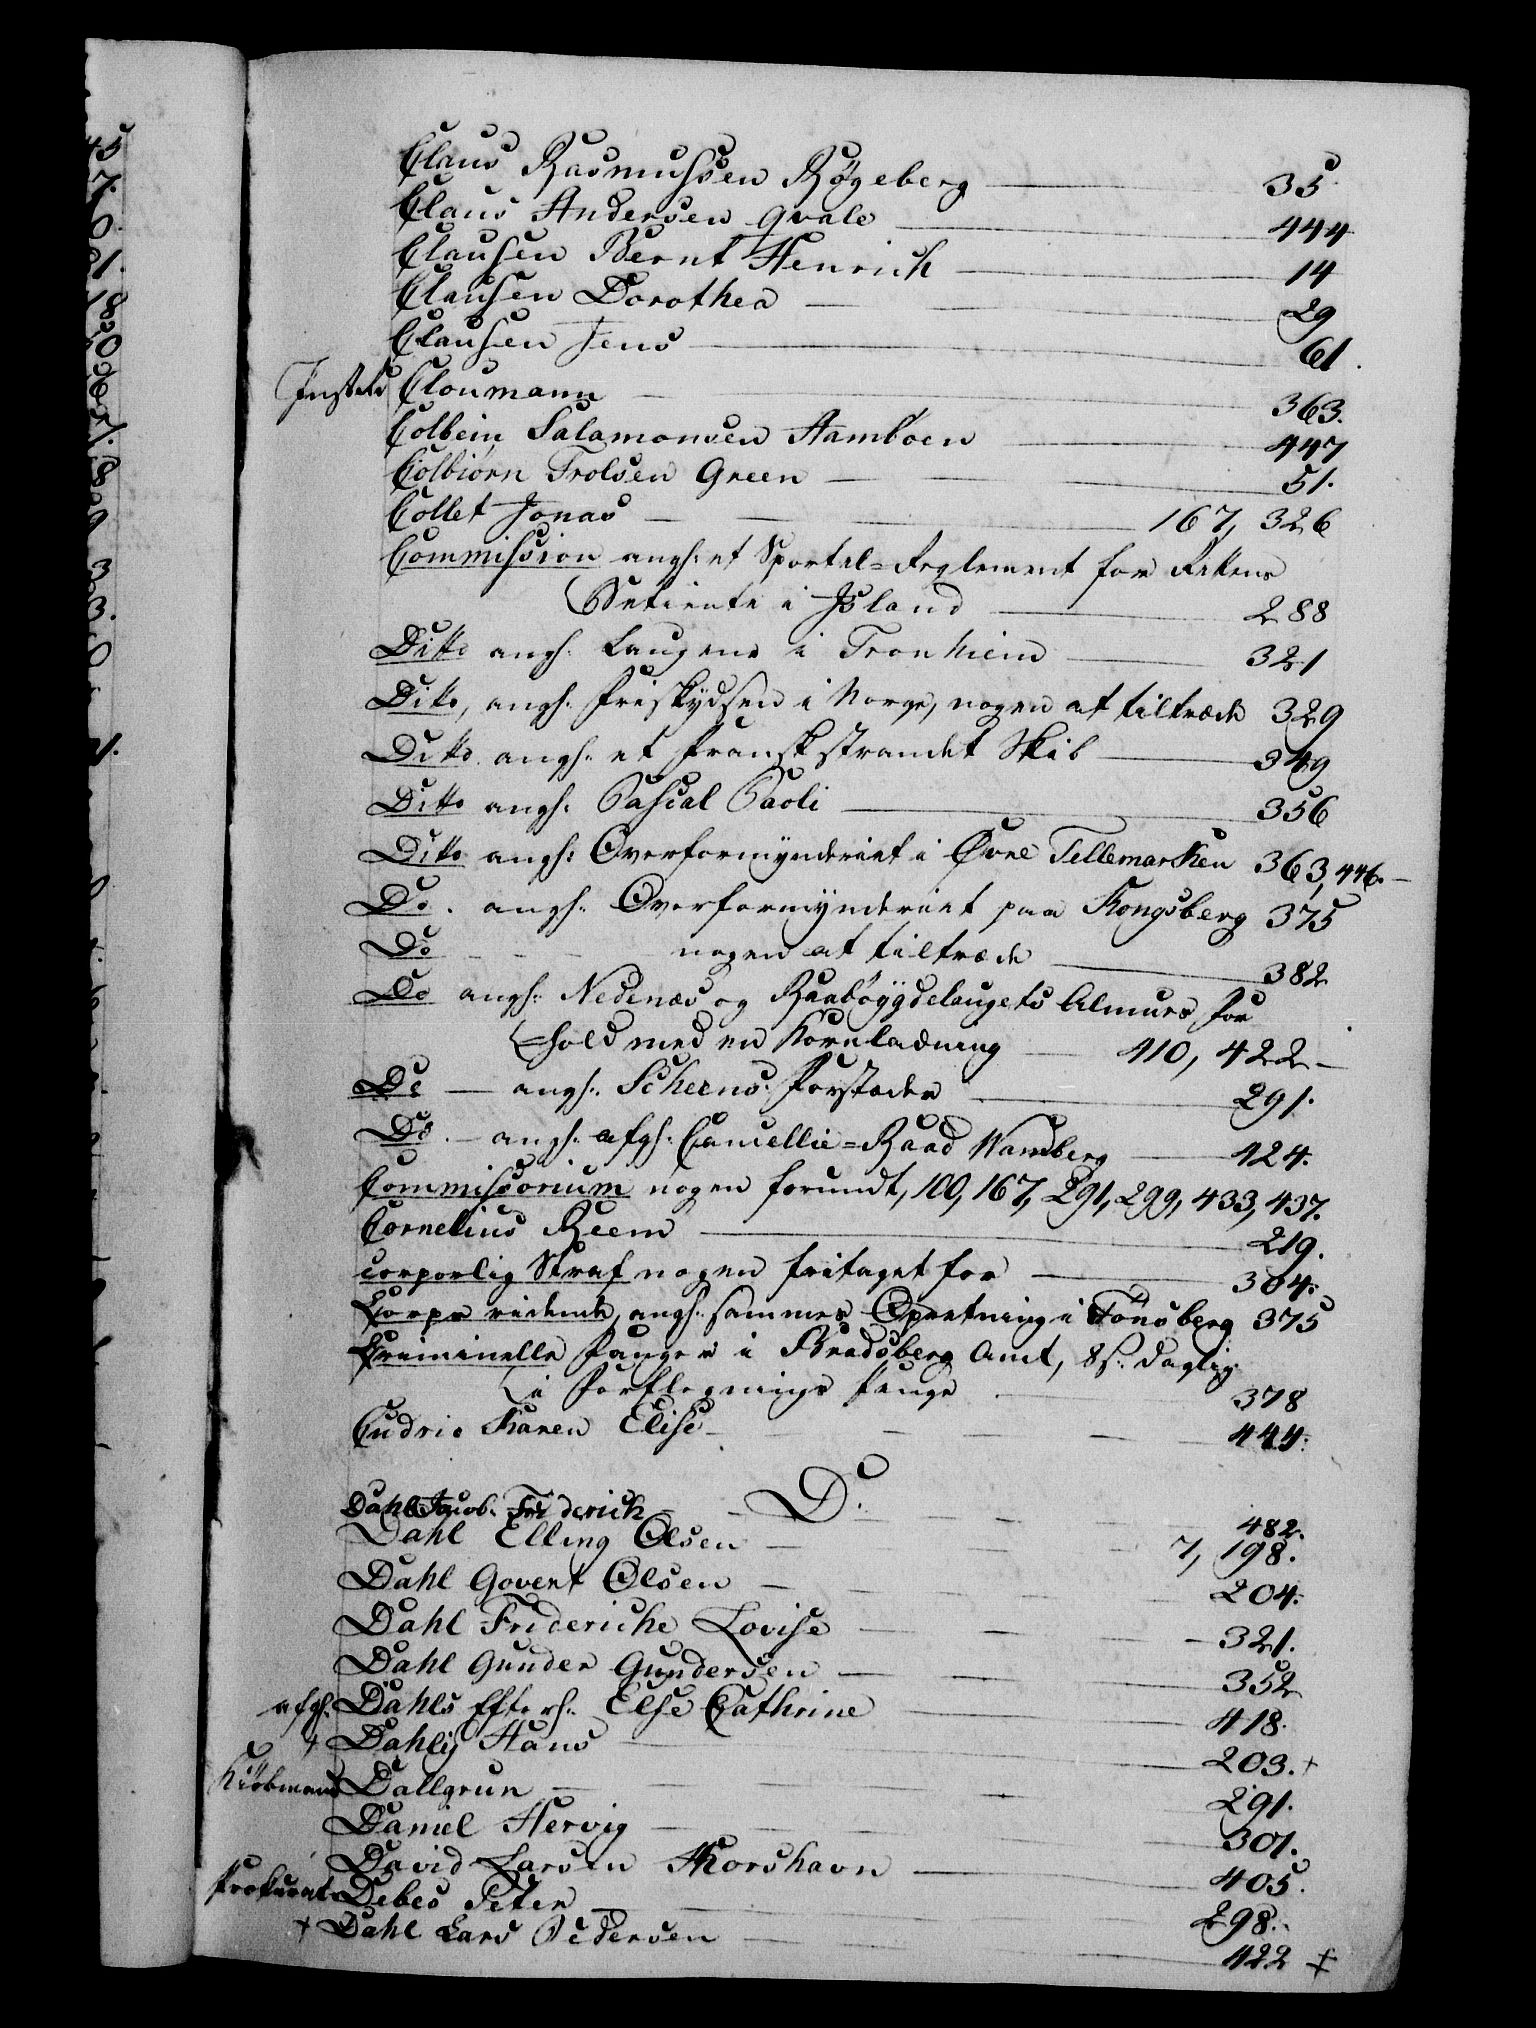 Claus Rasmussen Bøgeberg — 35
Claus Andersen Qvale — 444
Clausen Bernt Henrich — 14
Clausen Dorothea — 29
Clausen Jens — 61.
Cloumann — 363.
Colbein Salamonsen Aamboen — 447
Colbiørn Trolsen Green — 51.
Collet Jonas — 167, 326
Commission angh: et Sportel=Reglement for Rettens
Betiente i Island — 288
Ditto angh: Laugene i Tronhiem — 321
Ditto, angh: Friskydsen i Norge, nogen at tiltræde 329
Ditto angh: et Fransk strandet Skib — 349
Ditto angh: Pascal Paoli — 356
Ditto angh: Overformynderiet i Øvre Tellemarken 363, 446. —
Do. angh: Overformynderiet paa Kongsberg 375
Do — nogen at tiltræde — 382
Do angh: Nedenæs og Raabøygdelaugets Almues For
=hold med en Kornladning — 410, 422 —
Do — angh: Scheens Forstæder — 291.
Do. — angh: afgh: Cancellie=Raad Wamberg — 424.
Commissorium nogen forundt, 100, 167, 291, 299, 433, 437.
Cornelius Reem — 219.
corporlig Straf nogen fritaget for — 304.
Corps ridende, angh: sammes Opretning i Tønsberg 375
Criminelle Fanger i Bradsberg Amt, 8 s: daglig
i Forflegnings Penge — 378
Cudrio Karen Elise — 444.
D.
Dahl Jacob Friderich — 482.
Dahl Elling Olsen — 7, 198.
Dahl Govert Olsen — 204.
Dahl Frideriche Lovise — 321.
Dahl Gunder Gundersen — 352
afgh: Dahls Efterl: Else Cathrine — 418.
+ Dahlÿ Hans — 203. +
Kiøbmand Dallgrun — 291.
Daniel Hervig — 301.
David Larsen Thorshavn — 405.
Prokurat: Debes Peter — 298.
+ Dahl Lars Pedersen — 422 +